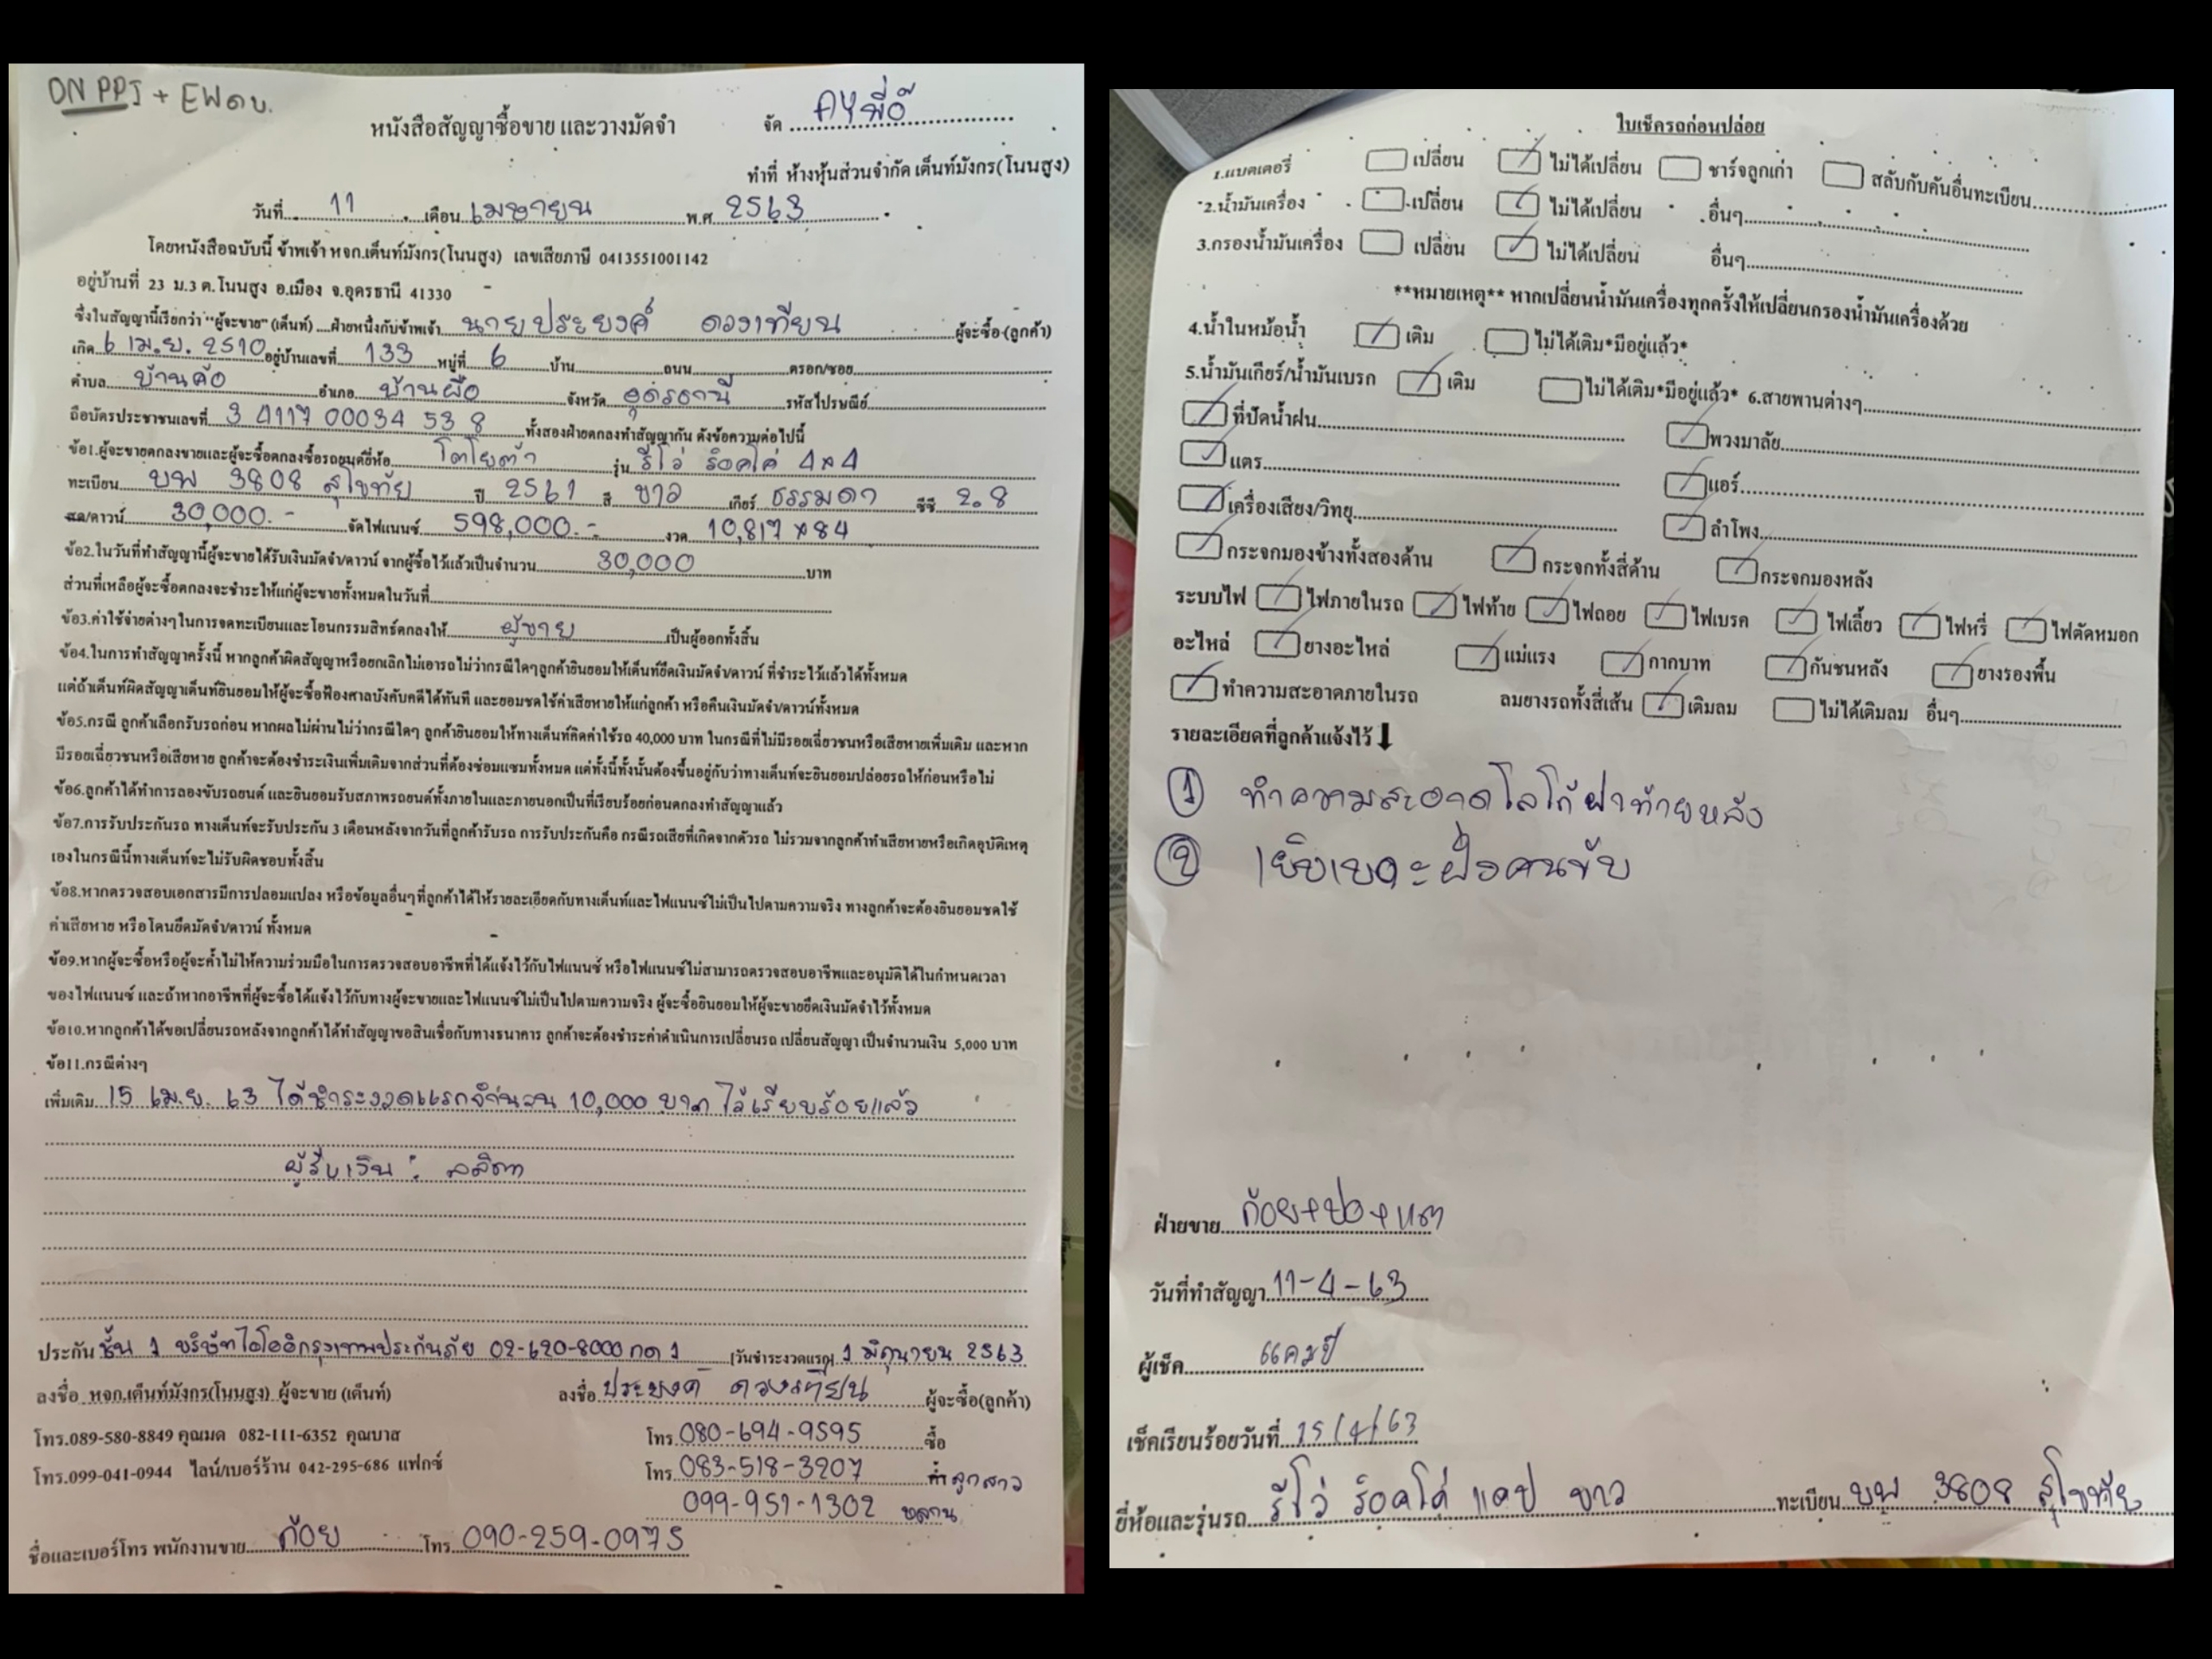 ON PPI + EWดบ.
หนังสือสัญญาซื้อขาย และวางมัดจำ
จัด AYพี่อ๊
ทำที่ ห้างหุ้นส่วนจำกัด เต็นท์มังกร(โนนสูง)
วันที่ 11 เดือน เมษายน พ.ศ 2563
โดยหนังสือฉบับนี้ ข้าพเจ้า หจก.เต็นท์มังกร(โนนสูง) เลขเสียภาษี 0413551001142
อยู่บ้านที่ 23 ม.3 ต.โนนสูง อ.เมือง จ.อุดรธานี 41330
ซึ่งในสัญญานี้เรียกว่า "ผู้จะขาย" (เต็นท์) ....ฝ่ายหนึ่งกับข้าพเจ้า นายประยงค์ ดวงเทียน ผู้จะซื้อ(ลูกค้า)
เกิด 6 เม.ย. 2510 อยู่บ้านเลขที่ 133 หมู่ที่ 6 บ้าน ถนน ตรอก/ซอย
ตำบล บ้านค้อ อำเภอ บ้านผือ จังหวัด อุดรธานี รหัสไปรษณีย์
ถือบัตรประชาชนเลขที่ 3 4117 00034 53 8 ทั้งสองฝ่ายตกลงทำสัญญากัน ดังข้อความต่อไปนี้
ข้อ1.ผู้จะขายตกลงขายและผู้จะซื้อตกลงซื้อรถยนต์ยี่ห้อ โตโยต้า รุ่น รีโว่ ร๊อคโค่ 4x4
ทะเบียน บพ 3808 สุโขทัย ปี 2561 สี ขาว เกียร์ ธรรมดา ซีซี 2.8
สด/ดาวน์ 30,000.- จัดไฟแนนซ์ 598,000.- งวด 10,817 x 84
ข้อ2.ในวันที่ทำสัญญานี้ผู้จะขายได้รับเงินมัดจำ/ดาวน์ จากผู้ซื้อไว้แล้วเป็นจำนวน 30,000 บาท
ส่วนที่เหลือผู้จะซื้อตกลงจะชำระให้แก่ผู้จะขายทั้งหมดในวันที่
ข้อ3.ค่าใช้จ่ายต่างๆในการจดทะเบียนและโอนกรรมสิทธ์ตกลงให้ ผู้ขาย เป็นผู้ออกทั้งสิ้น
ข้อ4.ในการทำสัญญาครั้งนี้ หากลูกค้าผิดสัญญาหรือยกเลิกไม่เอารถไม่ว่ากรณีใดๆลูกค้ายินยอมให้เต็นท์ยึดเงินมัดจำ/ดาวน์ ที่ชำระไว้แล้วได้ทั้งหมด
แต่ถ้าเต็นท์ผิดสัญญาเต็นท์ยินยอมให้ผู้จะซื้อฟ้องศาลบังคับคดีได้ทันที และยอมชดใช้ค่าเสียหายให้แก่ลูกค้า หรือคืนเงินมัดจำ/ดาวน์ทั้งหมด
ข้อ5.กรณี ลูกค้าเลือกรับรถก่อน หากผลไม่ผ่านไม่ว่ากรณีใดๆ ลูกค้ายินยอมให้ทางเต็นท์คิดค่าใช้รถ 40,000 บาท ในกรณีที่ไม่มีรอยเฉี่ยวชนหรือเสียหายเพิ่มเติม และหาก
มีรอยเฉี่ยวชนหรือเสียหาย ลูกค้าจะต้องชำระเงินเพิ่มเติมจากส่วนที่ต้องซ่อมแซมทั้งหมด แต่ทั้งนี้ทั้งนั้นต้องขึ้นอยู่กับว่าทางเต็นท์จะยินยอมปล่อยรถให้ก่อนหรือไม่
ข้อ6.ลูกค้าได้ทำการลองขับรถยนต์ และยินยอมรับสภาพรถยนต์ทั้งภายในและภายนอกเป็นที่เรียบร้อยก่อนตกลงทำสัญญาแล้ว
ข้อ7.การรับประกันรถ ทางเต็นท์จะรับประกัน 3 เดือนหลังจากวันที่ลูกค้ารับรถ การรับประกันคือ กรณีรถเสียที่เกิดจากตัวรถ ไม่รวมจากลูกค้าทำเสียหายหรือเกิดอุบัติเหตุ
เองในกรณีนี้ทางเต็นท์จะไม่รับผิดชอบทั้งสิ้น
ข้อ8.หากตรวจสอบเอกสารมีการปลอมแปลง หรือข้อมูลอื่นๆที่ลูกค้าได้ให้รายละเอียดกับทางเต็นท์และไฟแนนซ์ไม่เป็นไปตามความจริง ทางลูกค้าจะต้องยินยอมชดใช้
ค่าเสียหาย หรือโดนยึดมัดจำ/ดาวน์ ทั้งหมด
ข้อ9.หากผู้จะซื้อหรือผู้จะค้ำไม่ให้ความร่วมมือในการตรวจสอบอาชีพที่ได้แจ้งไว้กับไฟแนนซ์ หรือไฟแนนซ์ไม่สามารถตรวจสอบอาชีพและอนุมัติได้ในกำหนดเวลา
ของไฟแนนซ์ และถ้าหากอาชีพที่ผู้จะซื้อได้แจ้งไว้กับทางผู้จะขายและไฟแนนซ์ไม่เป็นไปตามความจริง ผู้จะซื้อยินยอมให้ผู้จะขายยึดเงินมัดจำไว้ทั้งหมด
ข้อ10.หากลูกค้าได้ขอเปลี่ยนรถหลังจากลูกค้าได้ทำสัญญาขอสินเชื่อกับทางธนาคาร ลูกค้าจะต้องชำระค่าดำเนินการเปลี่ยนรถ เปลี่ยนสัญญา เป็นจำนวนเงิน 5,000 บาท
ข้อ11.กรณีต่างๆ
เพิ่มเติม 15 เม.ย. 63 ได้ชำระงวดแรกจำนวน 10,000 บาท ไว้เรียบร้อยแล้ว
ผู้รับเงิน : ลลิตา
ประกัน ชั้น 1 บริษัทไอโออิกรุงเทพประกันภัย 02-620-8000 กด 1 (วันชำระงวดแรก) 1 มิถุนายน 2563
ลงชื่อ หจก.เต็นท์มังกร(โนนสูง) ผู้จะขาย (เต็นท์) ลงชื่อ ประยงค์ ดวงเทียน ผู้จะซื้อ(ลูกค้า)
โทร.089-580-8849 คุณมด 082-111-6352 คุณบาส โทร 080-694-9595 ซื้อ
โทร.099-041-0944 ไลน์/เบอร์ร้าน 042-295-686 แฟกซ์ โทร 083-518-3207 ค้ำ ลูกสาว
099-951-1302 หลาน
ชื่อและเบอร์โทร พนักงานขาย ก้อย โทร 090-259-0975
ใบเช็ครถก่อนปล่อย
1.แบตเตอรี่ เปลี่ยน ไม่ได้เปลี่ยน ชาร์จลูกเก่า สลับกับคันอื่นทะเบียน
2.น้ำมันเครื่อง เปลี่ยน ไม่ได้เปลี่ยน อื่นๆ
3.กรองน้ำมันเครื่อง เปลี่ยน ไม่ได้เปลี่ยน อื่นๆ
**หมายเหตุ** หากเปลี่ยนน้ำมันเครื่องทุกครั้งให้เปลี่ยนกรองน้ำมันเครื่องด้วย
4.น้ำในหม้อน้ำ เติม ไม่ได้เติม*มีอยู่แล้ว*
5.น้ำมันเกียร์/น้ำมันเบรก เติม ไม่ได้เติม*มีอยู่แล้ว* 6.สายพานต่างๆ
ที่ปัดน้ำฝน พวงมาลัย
แตร แอร์
เครื่องเสียง/วิทยุ ลำโพง
กระจกมองข้างทั้งสองด้าน กระจกทั้งสี่ด้าน กระจกมองหลัง
ระบบไฟ ไฟภายในรถ ไฟท้าย ไฟถอย ไฟเบรค ไฟเลี้ยว ไฟหรี่ ไฟตัดหมอก
อะไหล่ ยางอะไหล่ แม่แรง กากบาท กันชนหลัง ยางรองพื้น
ทำความสะอาดภายในรถ ลมยางรถทั้งสี่เส้น เติมลม ไม่ได้เติมลม อื่นๆ
รายละเอียดที่ลูกค้าแจ้งไว้
① ทำความสะอาดโลโก้ฝาท้ายหลัง
② เย็บเบาะฝั่งคนขับ
ฝ่ายขาย ก้อย+ปอ+แต
วันที่ทำสัญญา 11-4-63
ผู้เช็ค แคมป์
เช็คเรียบร้อยวันที่ 15/4/63
ยี่ห้อและรุ่นรถ รีโว่ ร๊อคโค่ แคป ขาว ทะเบียน บพ 3808 สุโขทัย